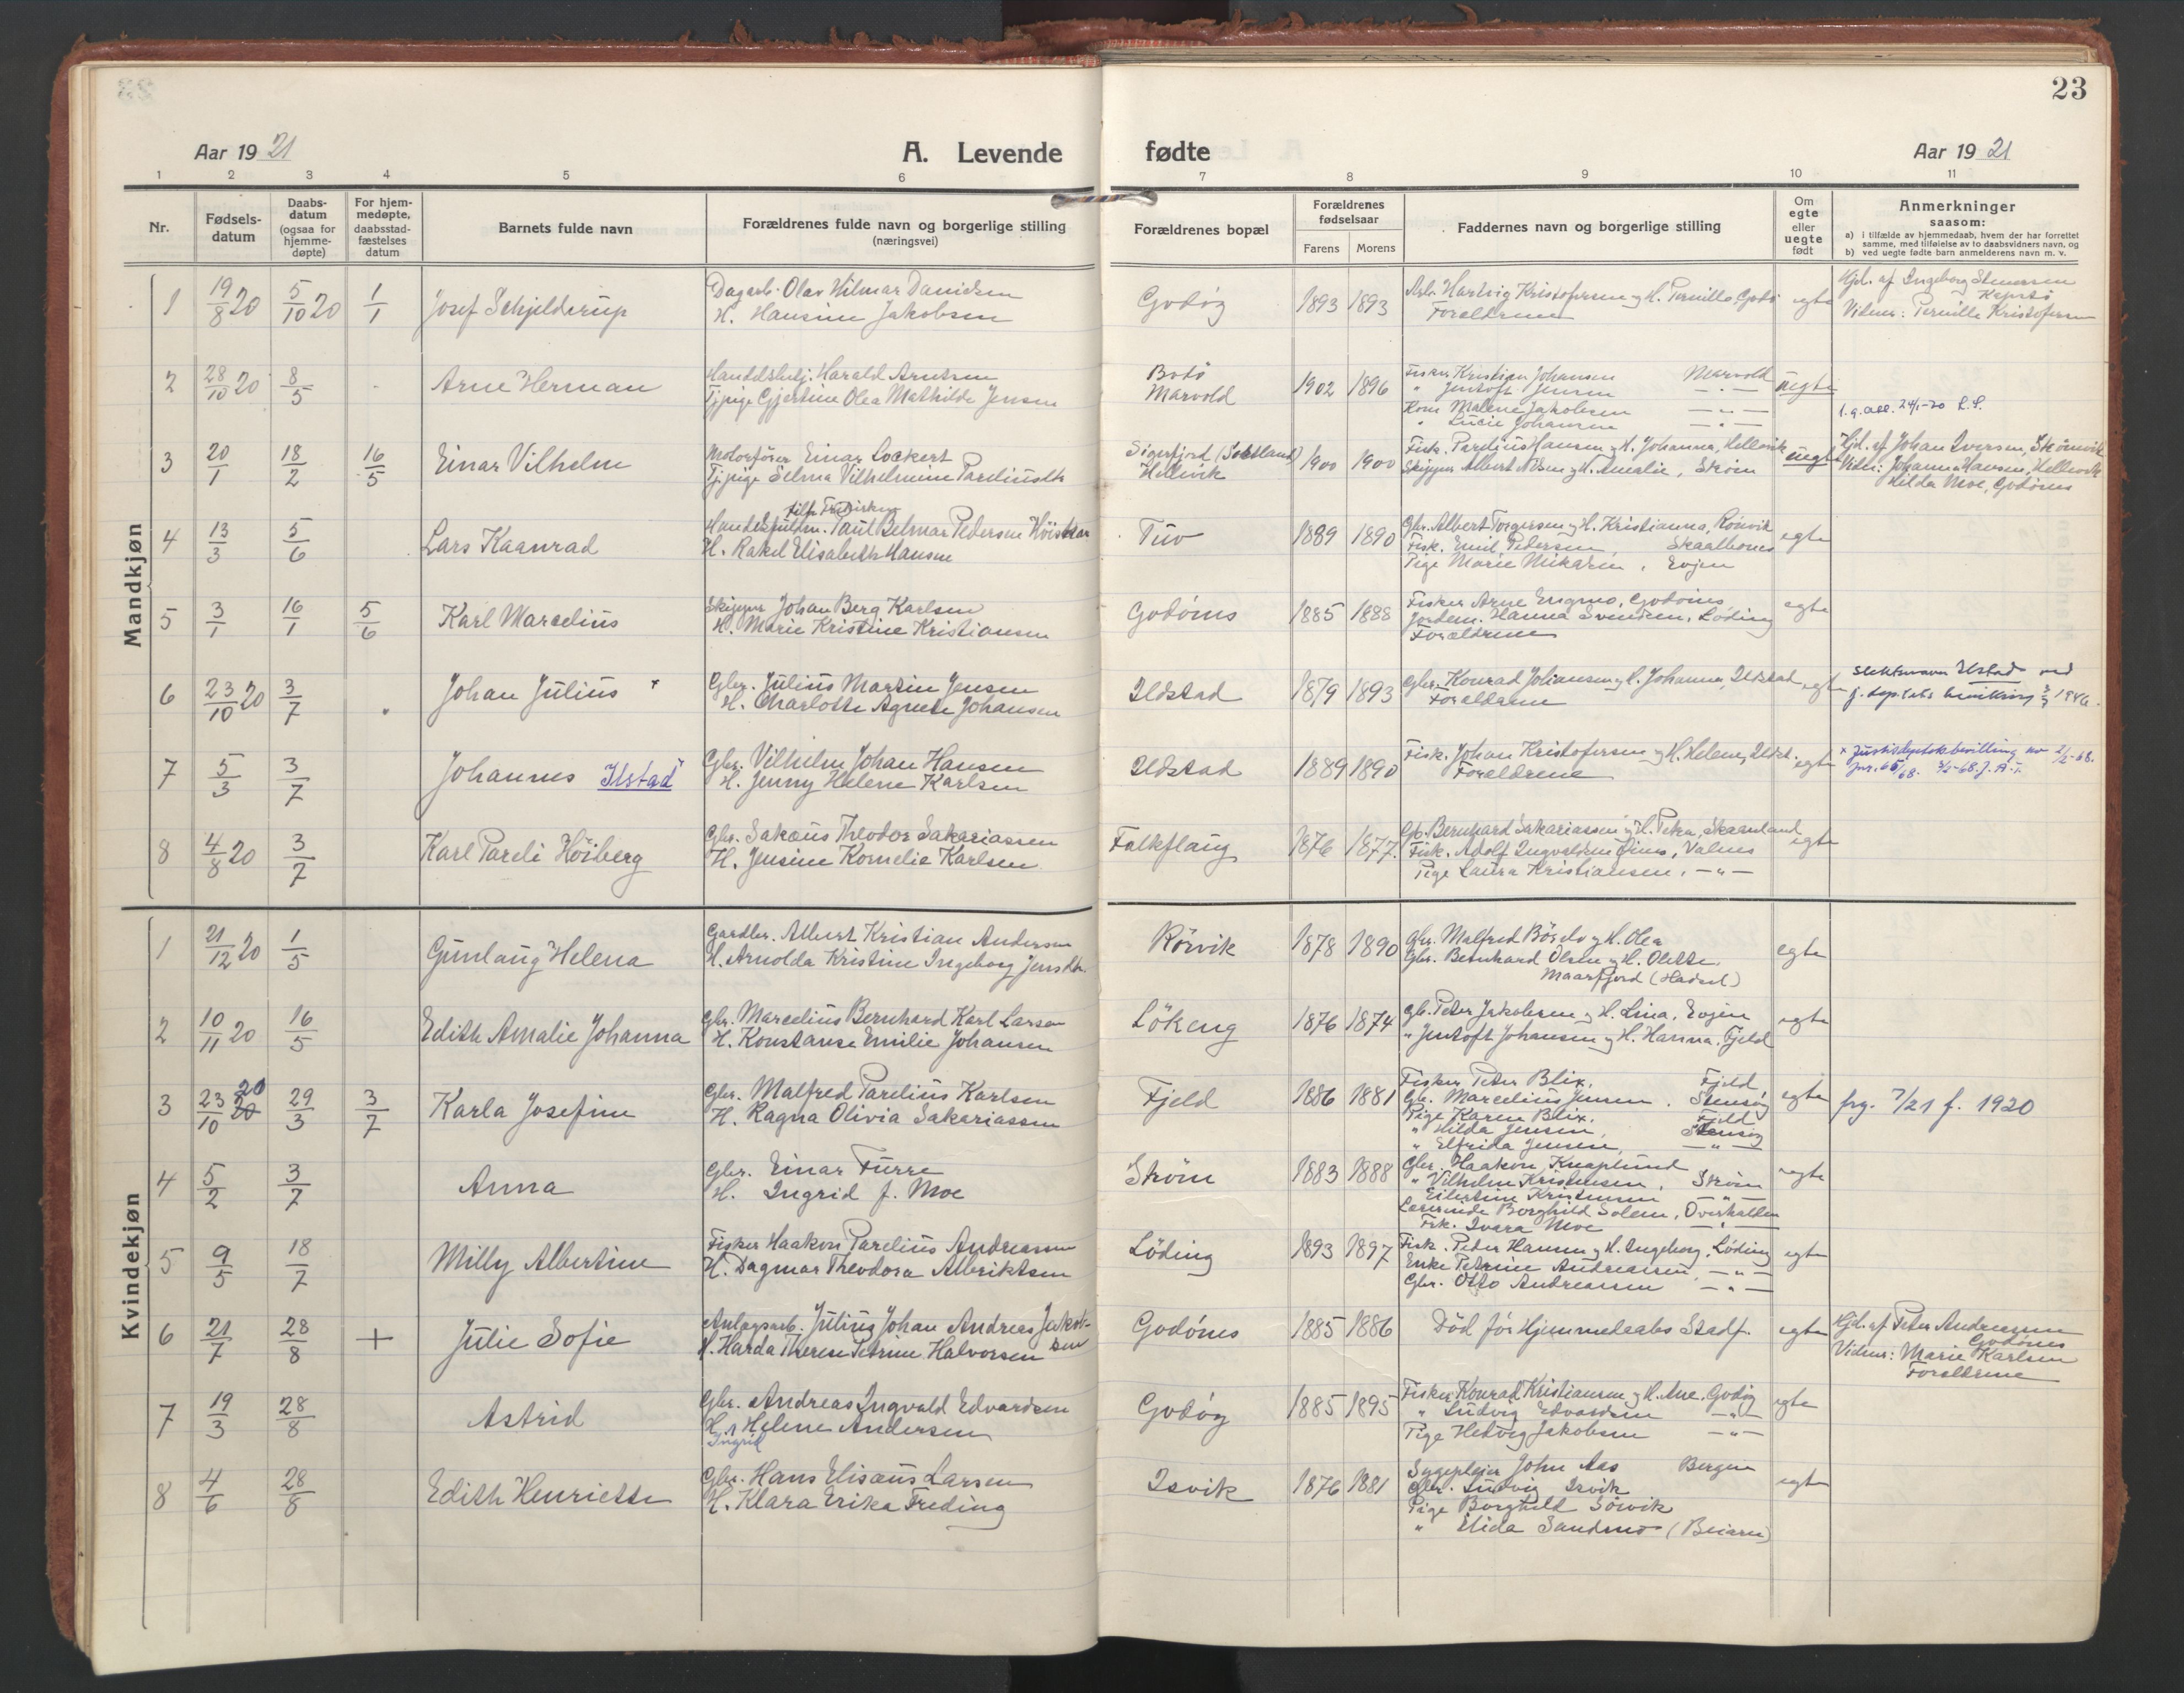 23
Aar 19 21
A. Levende
fødte
Aar 19 21
1 2 3 4 5 6 7 8 9 10 11
Nr.
Fødsels-
datum
Daabs-
datum
(ogsaa for
hjemme-
døpte)
For hjem-
medøpte,
daabsstad-
fæstelses
datum
Barnets fulde navn
Forældrenes fulde navn og borgerlige stilling
(næringsvei)
Forældrenes bopæl
Forældrenes
fødselsaar
Farens Morens
Faddernes navn og borgerlige stilling
Om
egte
eller
uegte
født
Anmerkninger
saasom:
a) i tilfælde av hjemmedaab, hvem der har forrettet
samme, med tilføielse av to daabsvidners navn, og
b) ved uegte fødte barn anmelderens navn m. v.
Mandkjøn
1 19/8 20 5/10 20 1/1 Josef Schjelderup
Dagarb. Olav Hilmar Danielsen
H. Hansine Jakobsen
Godöy 1893 1893
Arb. Hartvig Kristofersen og H. Pernille Godö
Forældrene
egte
Hjd. af Ingeborg
Vidner: Pernille Kristofersen
2 28/10 20 8/5 Arne Herman
Handelsbetj. Harald Arntsen
Tjpige Gjertine Olea Mathilde Jensen
Bodö
Marvold
1902 1896
Fisker Kristian Johansen Marvold
" Jentoft Jensen — " —
Kone Malene Jakobsen — " —
" Lucie Johansen — " —
uegte
3 20/1 18/2 16/5 Einar Vilhelm
Motorfører Einar Lockert
Tj.pige Selma Vilhelmine Pareliusdtr
Sigerfjord (Sortland)
Hellevik
1900 1900
Fisk. Parelius Hansen og H. Johanna, Hellevik
Skipper Albert Nilsen og H. Amalie, Ström
uegte
Hjd. af Johan Iversen, Strömvik
Vidn: Johanna Hansen, Hellevik
Hilda Moe, Godönes
4 13/3 5/6 Lars Kaanrad
Paul Belmar Pedersen
H. Rakel Elisabeth Hansen
Tuv 1889 1890
Gbr. Albert Torgersen og H. Kristianna, Rönvik
Fisk. Emil Pedersen,
Pige Marie Mikalsen, Evjen
egte
5 3/1 16/1 5/6 Karl Marcelius
Skipper Johan Berg Karlsen
H. Marie Kristine Kristiansen
Godönes 1885 1888
Fisker Arne Engmo, Godönes
Jordem. Hanna Svendsen, Löding
Forældrene
egte
6 23/10 20 3/7 Johan Julius
Gbr. Julius Martin Jensen
H. Charlotte Agnete Johansen
Ildstad 1879 1893
Gbr. Konrad Johansen og H. Johanna, Ildstad
Forældrene
egte
Slektsnavn Ilstad ved
7 5/3 3/7 Johannes Ilstad
Gbr. Vilhelm Johan Hansen
H. Jenny Helene Karlsen
Ildstad 1889 1890
Fisk. Johan Kristofersen og H. Helene, Ildst.
Forældrene
egte
8 4/8 20 3/7 Karl Pareli Höiberg
Gbr. Sakæus Theodor Sakariassen
H. Jensine Kornelie Karlsen
Falkflaug 1876 1877
Gb. Bernhard Sakariassen og H. Petra, Skaanland
Fisk. Adolf Ingvaldsen Valnes
Pige Laura Kristiansen, — " —
egte
Kvindekjøn
1 21/12 20 1/5 Gunlaug Helena
Gardbr. Albert Kristian Andersen
H. Arnolda Kristine Ingeborg Jensdtr.
Rörvik 1878 1890
Gbr. Malfred og H. Olea
Gbr. Bernhard Olsen og H. Olette
Maarfjord (Hadsel)
egte
2 10/11 20 16/5 Edith Amalie Johanna
Gbr. Marcelius Bernhard Karl Larsen
H. Konstanse Emilie Johansen
Lökeng 1876 1874
Gb. Peter Jakobsen og H. Lina, Evjen
" Jentoft Johansen og H. Hanna, Fjeld
egte
3 23/10 20 29/3 3/7 Karla Josefine
Gbr. Malfred Parelius Karlsen
H. Ragna Olivia Sakariassen
Fjeld 1886 1881
Fisker Peter Blix, Fjeld
Gb. Marcelius Jensen, Stensöy
Pige Karen Blix, Fjeld
" Hilda Jensen, Stensöy
" Elfrida Jensen, — " —
egte
frg. 7/21 f. 1920
4 5/2 3/7 Anna
Gbr. Einar Furre
H. Ingrid f. Moe
Ström 1883 1888
Gbr. Haakon Knaplund
" Vilhelm Kristensen, Ström
" Eilertine Kristensen — " —
Lærerinde Borghild Solem, Overhallen
Frk. Ivara Moe — " —
egte
5 9/5 18/7 Milly Albertine
Fisker Haakon Parelius Andreassen
H. Dagmar Theodora Albriktsen
Löding 1893 1897
Fisk. Peder Hansen og H. Ingeborg, Löding
Enke Petrine Andreassen, — " —
Gbr. Otto Andreassen — " —
egte
6 21/7 28/8 + Julie Sofie
Anlægsarb. Julius Johan Andreas Jakob-
sen
H. Harda Therese Petrine Halvorsen
Godönes 1885 1886
Död för Hjemmedaabs Stadf.
egte
Hjd. af Peter Andreassen
Godönes
Vidner: Marie Karlsen
Forældrene
7 19/3 28/8 Astrid
Gbr. Andreas Ingvald Edvardsen
H. Helene Andersen
Ingrid
Godöy 1885 1895
Fisker Konrad Kristiansen og H. Ane, Godöy
" Ludvig Edvardsen — " —
Pige Hedvig Jakobsen — " —
egte
8 4/6 28/8 Edith Henriette
Gbr. Hans Elisæus Larsen
H. Klara Erika Freding
Isvik 1876 1881
Sygepleier John Aas Bergen
Gbr. Ludvig Isvik
Pige Borghild Sörvik
" Elida Sandmo (Beiarn)
egte